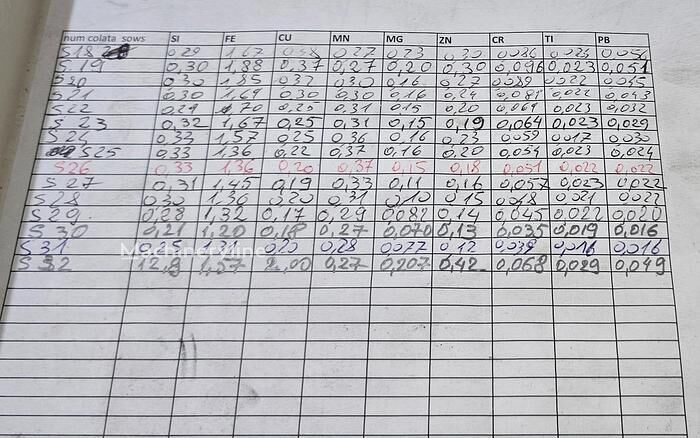 num colata sows SI FE CU MN MG ZN CR TI PB
S18 0,29 1,67 0,38 0,27 0,23 0,30 0,086 0,024 0,054
S 19 0,30 1,88 0,37 0,27 0,20 0,30 0,096 0,023 0,051
S20 0,30 1,85 0,37 0,30 0,16 0,27 0,022 0,045
S21 0,30 1,69 0,30 0,30 0,16 0,24 0,081 0,022 0,043
S22 0,29 1,70 0,25 0,31 0,15 0,20 0,069 0,023 0,032
S 23 0,32 1,67 0,25 0,31 0,15 0,19 0,064 0,023 0,029
0,33 1,57 0,25 0,36 0,16 0,23 0,059 0,017 0,030
S25 0,33 1,36 0,22 0,37 0,16 0,20 0,054 0,023 0,024
S26 0,33 1,36 0,20 0,37 0,15 0,18 0,051 0,022 0,022
S 27 0,31 1,45 0,19 0,33 0,11 0,16 0,057 0,023 0,022
S28 0,30 1,36 0,20 0,31 0,10 0,15 0,048 0,021 0,022
S29. 0,28 1,32 0,17 0,29 0,082 0,14 0,045 0,022 0,020
S 30 0,21 1,20 0,18 0,27 0,070 0,13 0,035 0,019 0,016
S 31 0,28 0,12 0,016 0,016
S 32 12,9 1,57 2,00 0,27 0,207 0,42 0,068 0,029 0,049